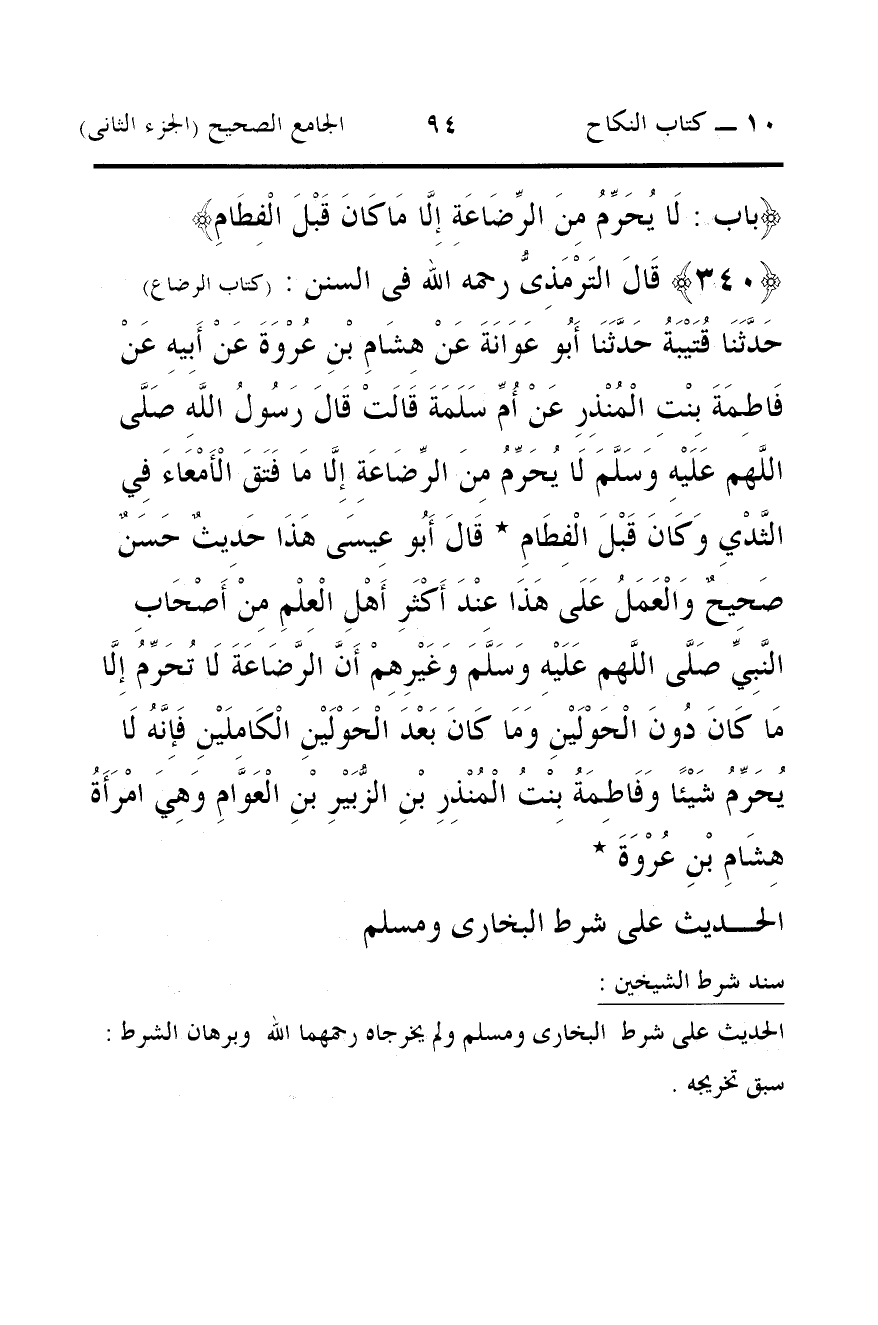 ١٠ ـــ كتاب النكاح ٩٤ الجامع الصحيح (الجزء الثانى)
﴿باب : لَا يُحَرِّمُ مِنَ الرِّضَاعَةِ إِلَّا مَاكَانَ قَبْلَ الْفِطَامِ﴾
﴿٣٤٠﴾ قَالَ التَرْمَذِىُّ رحمه الله فى السنن : (كتاب الرضاع)
حَدَّثَنَا قُتَيْبَةُ حَدَّثَنَا أَبُو عَوَانَةَ عَنْ هِشَامِ بْنِ عُرْوَةَ عَنْ أَبِيهِ عَنْ
فَاطِمَةَ بِنْتِ الْمُنْذِرِ عَنْ أُمِّ سَلَمَةَ قَالَتْ قَالَ رَسُولُ اللَّهِ صَلَّى
اللَّهم عَلَيْهِ وَسَلَّمَ لَا يُحَرِّمُ مِنَ الرِّضَاعَةِ إِلَّا مَا فَتَقَ الْأَمْعَاءَ فِي
الثَّدْيِ وَكَانَ قَبْلَ الْفِطَامِ * قَالَ أَبُو عِيسَى هَذَا حَدِيثٌ حَسَنٌ
صَحِيحٌ وَالْعَمَلُ عَلَى هَذَا عِنْدَ أَكْثَرِ أَهْلِ الْعِلْمِ مِنْ أَصْحَابِ
النَّبِيِّ صَلَّى اللَّهم عَلَيْهِ وَسَلَّمَ وَغَيْرِهِمْ أَنَّ الرَّضَاعَةَ لَا تُحَرِّمُ إِلَّا
مَا كَانَ دُونَ الْحَوْلَيْنِ وَمَا كَانَ بَعْدَ الْحَوْلَيْنِ الْكَامِلَيْنِ فَإِنَّهُ لَا
يُحَرِّمُ شَيْئًا وَفَاطِمَةُ بِنْتُ الْمُنْذِرِ بْنِ الزُّبَيْرِ بْنِ الْعَوَّامِ وَهِيَ امْرَأَةُ
هِشَامِ بْنِ عُرْوَةَ *
الحـــديث على شرط البخارى ومسلم
سند شرط الشيخين :
الحديث على شرط البخارى ومسلم ولم يخرجاه رحمهما الله وبرهان الشرط :
سبق تخريجه .